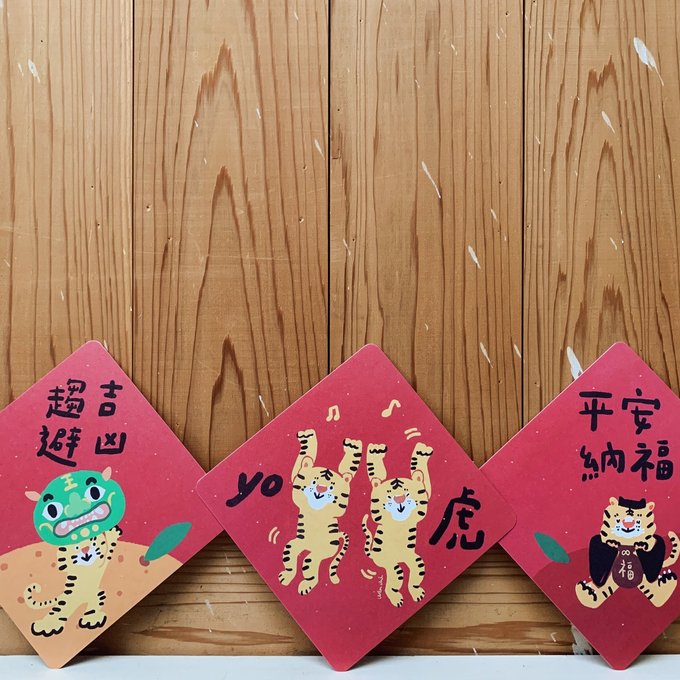 趨吉
避凶
yo
虎
平安
納福
福